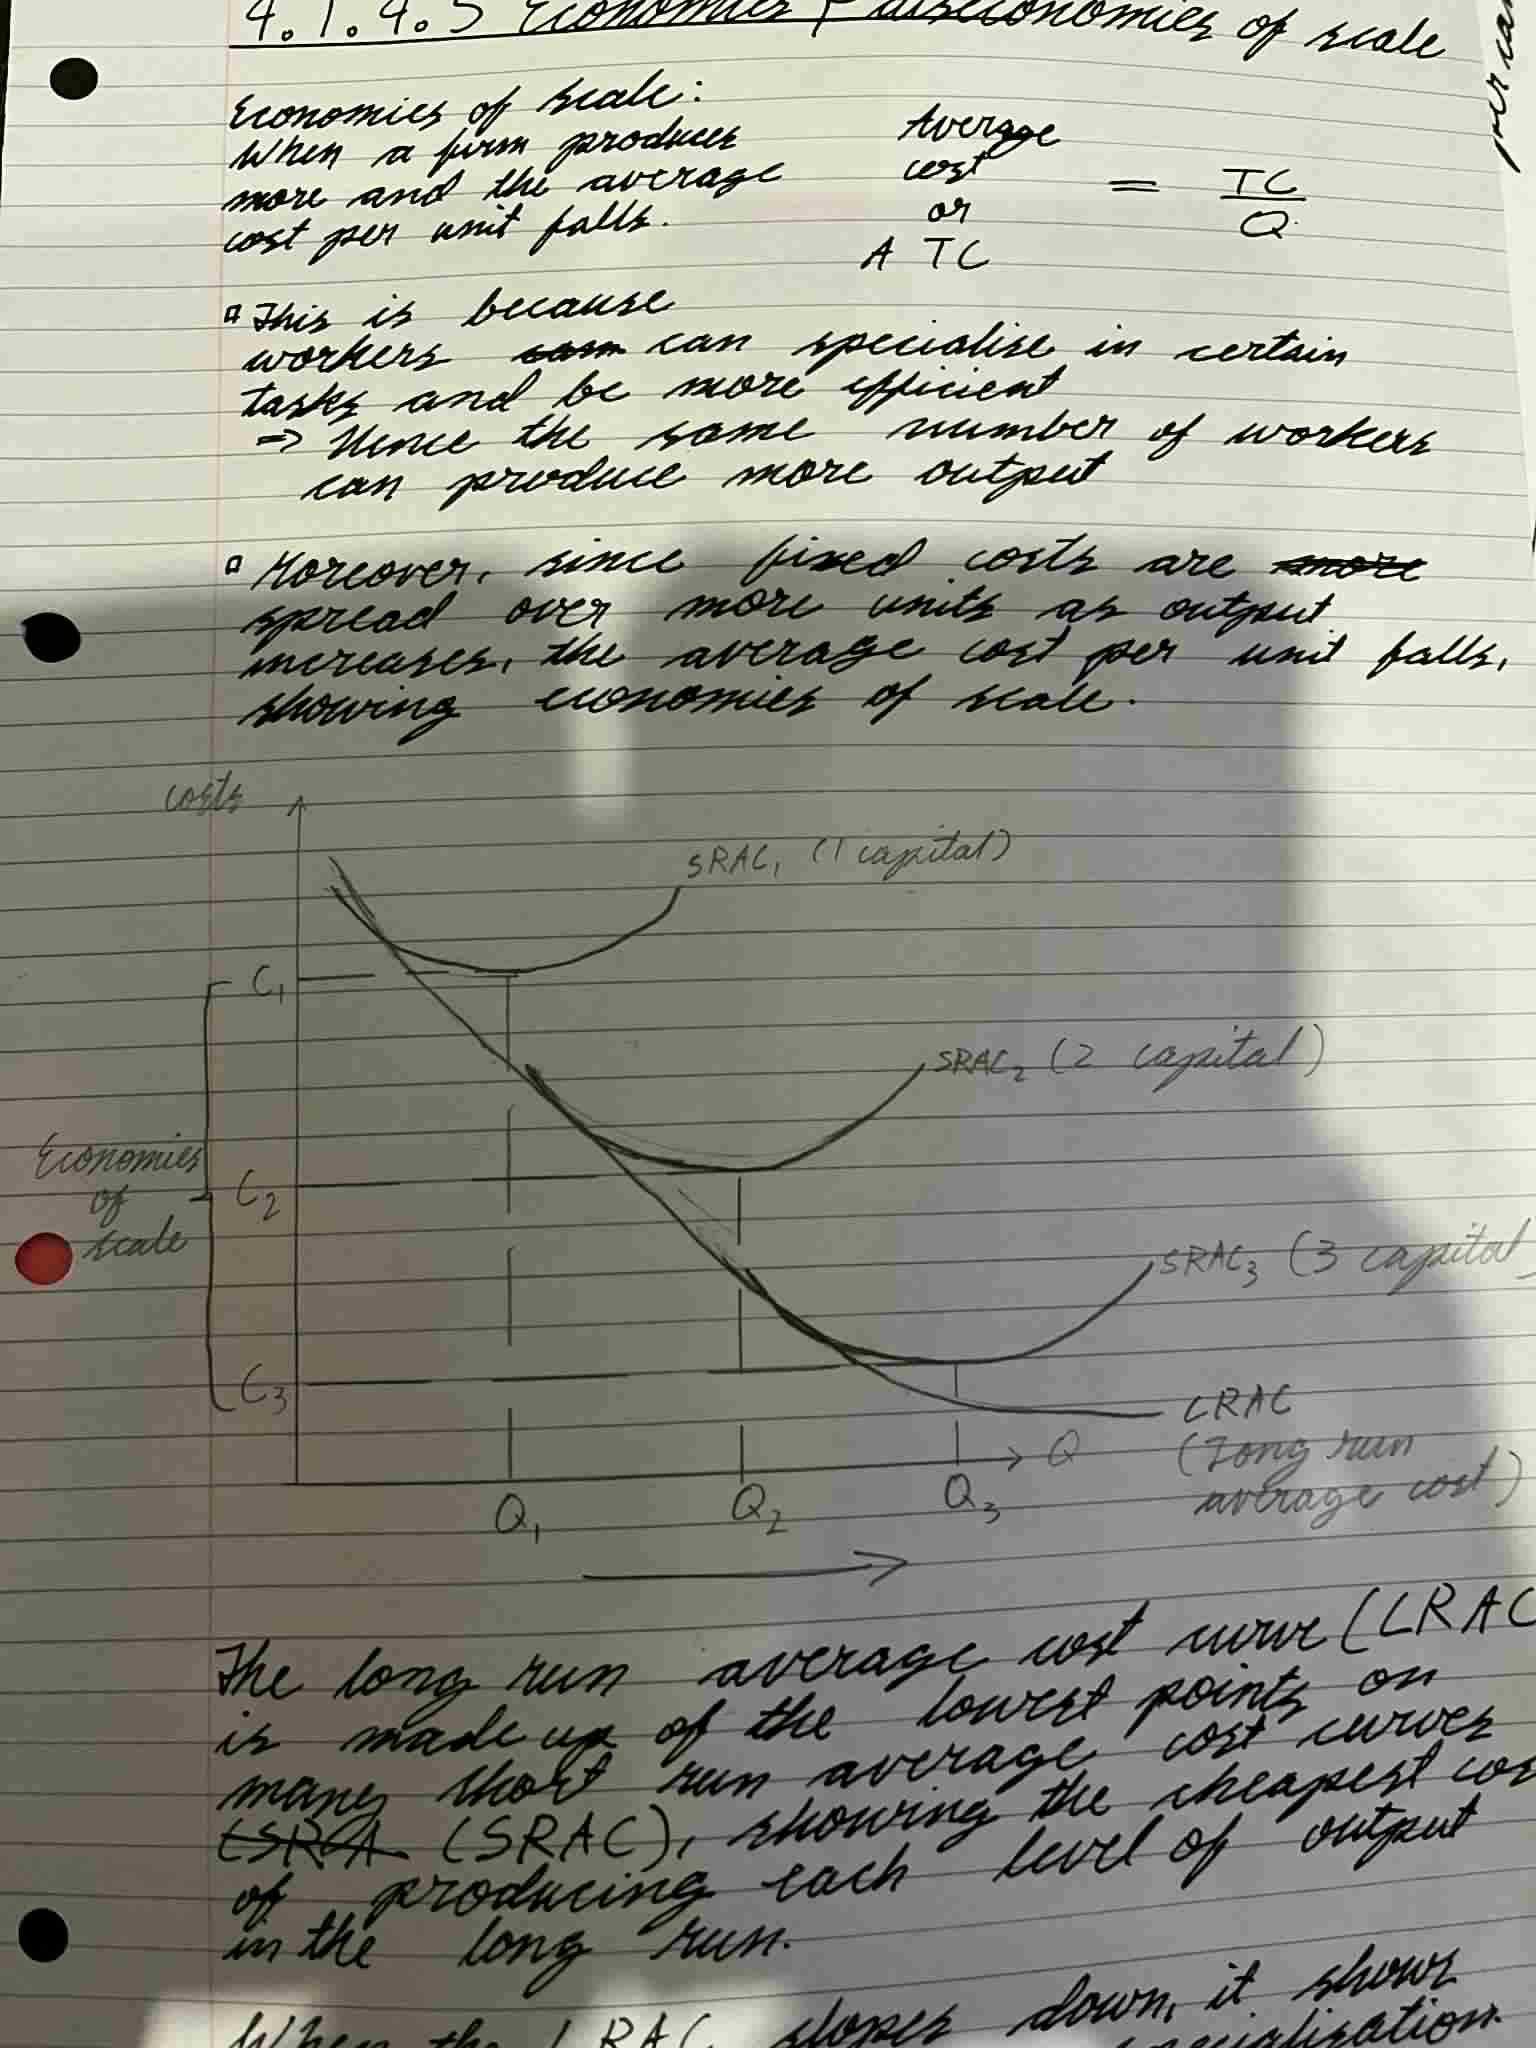 4.1.4.5 Economies + diseconomies of scale
Economies of scale:
When a firm produces
more and the average
cost per unit falls.
Average
cost
or
ATC
= TC
Q
This is because
workers can can specialise in certain
tasks and be more efficient
=> Hence the same number of workers
can produce more output
Moreover, since fixed costs are more
spread over more units as output
increases, the average cost per unit falls,
showing economies of scale.
costs
SRAC₁ (1 capital)
C₁
SRAC₂ (2 capital)
Economies
of
scale
C₂
SRAC₃ (3 capital
C₃
LRAC
(Long run
average cost)
Q
Q₁
Q₂
Q₃
The long run average cost curve (LRAC
is made up of the lowest points on
many short run average cost curves
(SRA (SRAC), showing the cheapest
of producing each level of output
in the long run.
When the LRAC slopes down, it shows